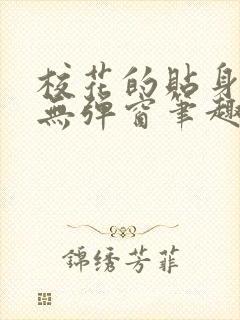 校花的貼身
無弹窗筆趣
錦绣芳菲